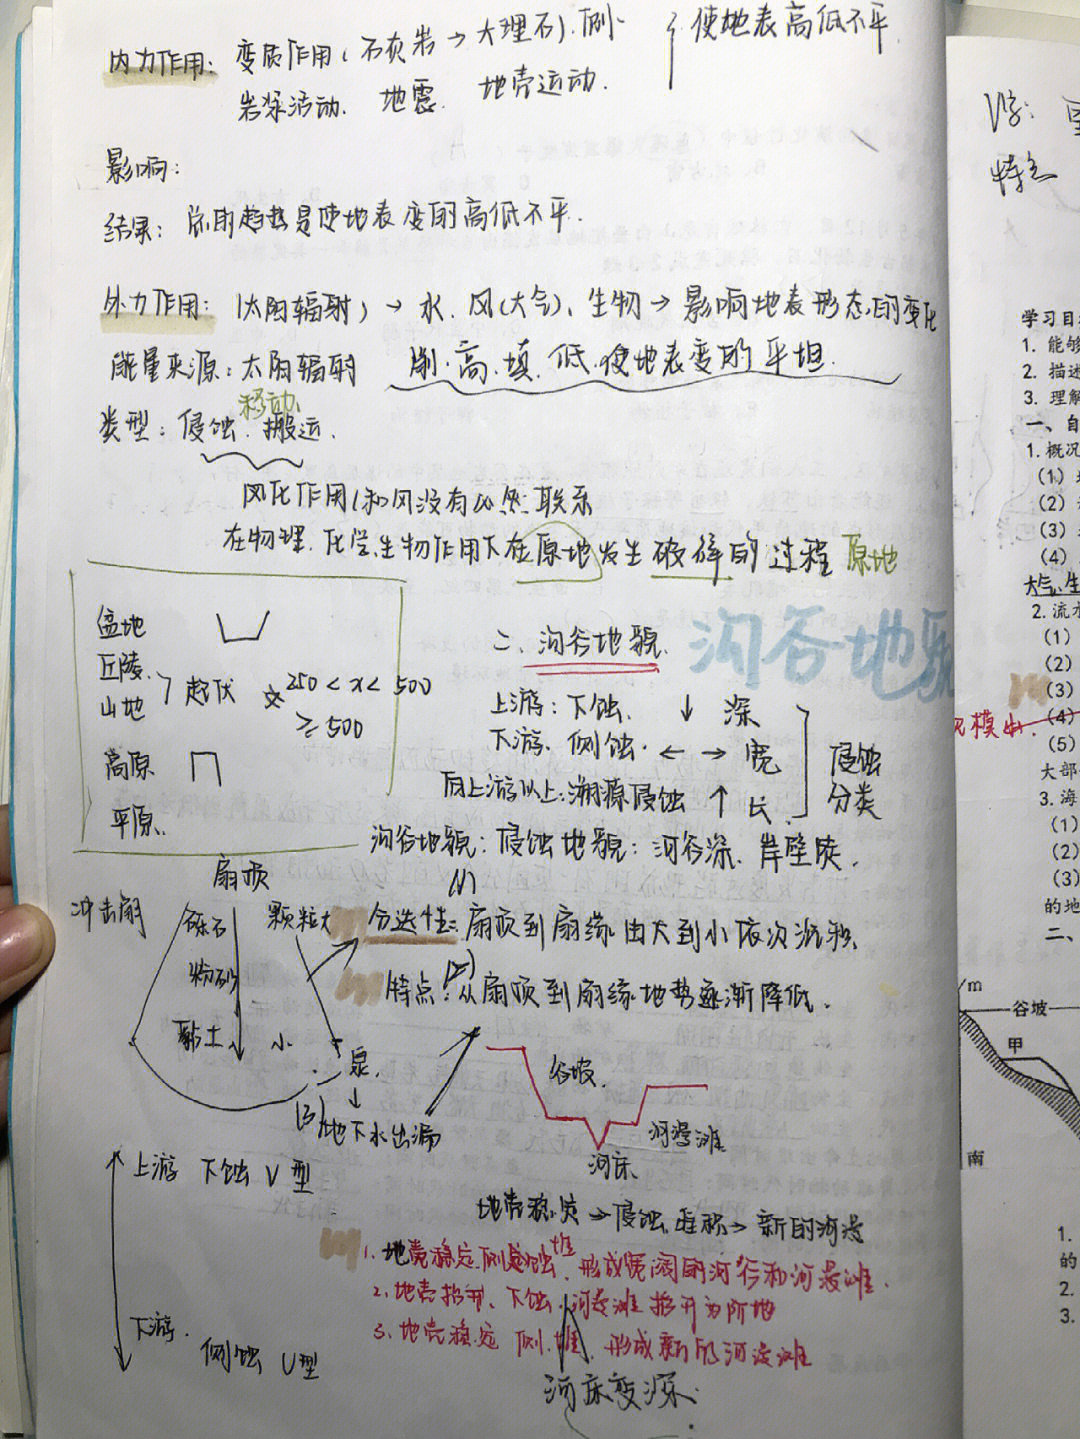 内力作用：变质作用（石灰岩→大理石）.例、
使地表高低不平
岩浆活动. 地震. 地壳运动.
影响：
结果：总的趋势是使地表变的高低不平.
外力作用：（太阳辐射）→水、风（大气）、生物→影响地表形态的变化
能量来源：太阳辐射 削.高.填.低.使地表变的平坦.
移动
类型：侵蚀.搬运.
风化作用（和风没有必然联系
在物理.化学.生物作用下在原地发生破碎的过程 原地
盆地
丘陵.
山地
起伏 250<x<500
≥500
高原
平原.
二、沟谷地貌. 沟谷地貌
上游：下蚀. ↓ 深
下游. 侧蚀. ←→ 宽
向上游以上：溯源侵蚀 ↑ 长
侵蚀
分类
沟谷地貌：侵蚀地貌：河谷深、岸壁陡.
扇顶
冲击扇
砾石 颗粒大
粉砂
黏土 小
(1)
分选性：扇顶到扇缘由大到小依次沉积.
(2)
特点：从扇顶到扇缘地势逐渐降低.
泉.
↓
(3)地下水出漏
谷坡.
河漫滩
河床.
上游 下蚀 V型
下游.
侧蚀 U型
→侵蚀. →新的河漫
堆
1. 地壳稳定. 形成宽阔的河谷和河漫滩.
2. 地壳抬升、下蚀. 河漫滩抬升为阶地
3. 地壳稳定 侧.堆. 形成新的河漫滩
河床变深.
学习目
1. 能够
2. 描述
3. 理解
一、自
1. 概况
（1）
（2）
（3）
（4）
大气.生
2. 流水
（1）
（2）
（3）
（4）
（5）
大部
3. 海
（1）
（2）
（3）
的地
二、
/m
谷坡
甲
南
1.
的
2.
3.